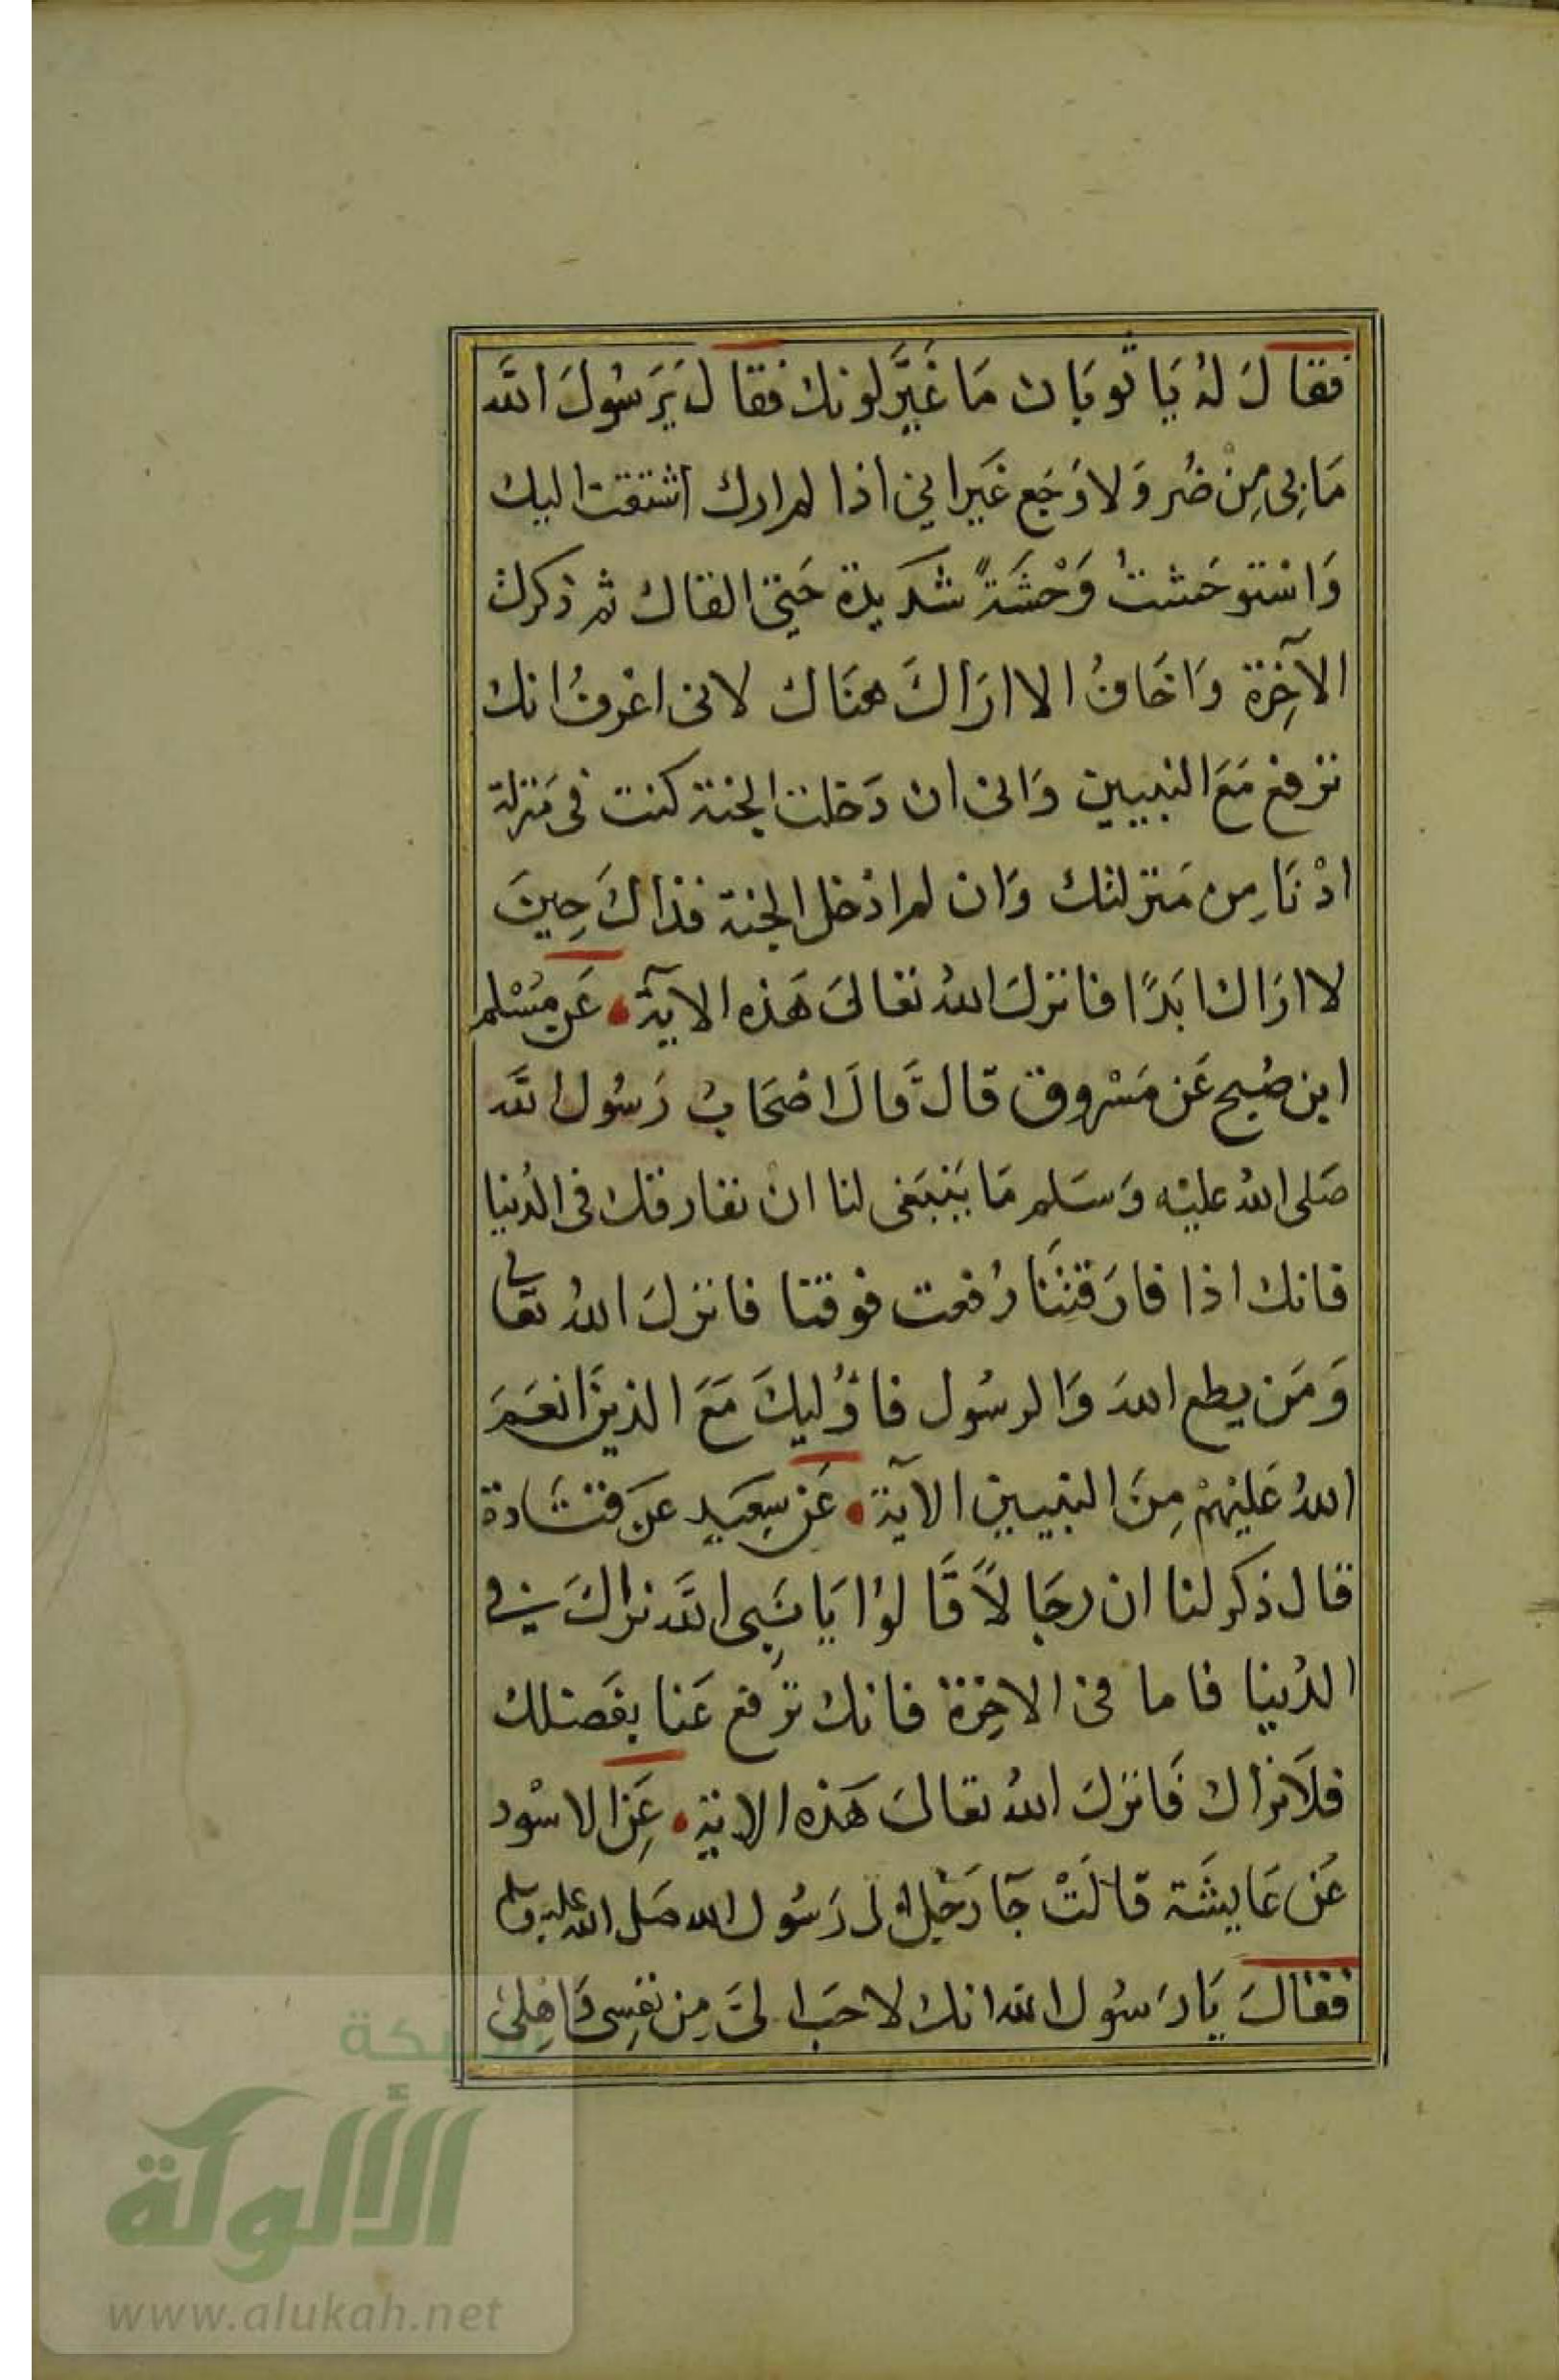 فقالَ لهُ يَا ثوبَان مَا غَيَّرَ لونك فقالَ يَرَسُولَ اللَّه
مَا بِى مِنْ ضُر وَلا وَجَع غَير اني اذا لم ارك اشتقت اليك
وَاستوحَشتُ وَحْشَةً شَديدة حَتى القاك ثم ذكرت
الآخِرَة وَاخَافُ الا ارَاكَ هنَاك لانى اعْرفُ انك
ترفع مَعَ النبيين وَانى ان دَخلت الجنة كنت فى مَنزلة
ادْنَا مِن مَنزلتك وَان لم ادْخل الجنة فذاكَ حِينَ
لا ارَاك ابَدًا فانزلَ اللهُ تعَالىَ هَذه الآية عَن مُسْلم
ابن صُبيح عَن مَسْروق قال قالَ اصْحَابُ رَسُول اللَّه
صَلى اللهُ عليْه وَسَلم مَا يَنبَغى لنا انْ نفارقك فى الدُنيا
فانك اذا فارَقتنَا رُفعت فوقنا فانزلَ اللهُ تعالى
وَمَن يطع اللهَ وَالرسُول فاوُليكَ مَعَ الذينَ انعَمَ
اللهُ عَليْهمْ مِنَ النبيين الآية عَن سِعَيد عَن قتَادة
قال ذكر لنا ان رجَالاً قَالوُا يَا نَبِى اللَّه نراكَ في
الدُنيا فاما فى الاخِرَة فانك ترفع عَنا بفَضلك
فلاَ نراك فَانزلَ اللهُ تعالىَ هَذه الاية عَنِ الاسْود
عَن عَايشَة قالَتْ جَآ رَجُل الى رَسُول الله صَلى الله عليه وسلم
فقالَ يَا رَسُول الله انك لاحَب الىَّ مِن نفسِى وَاهِلى
شبكة
الألوكة
www.alukah.net